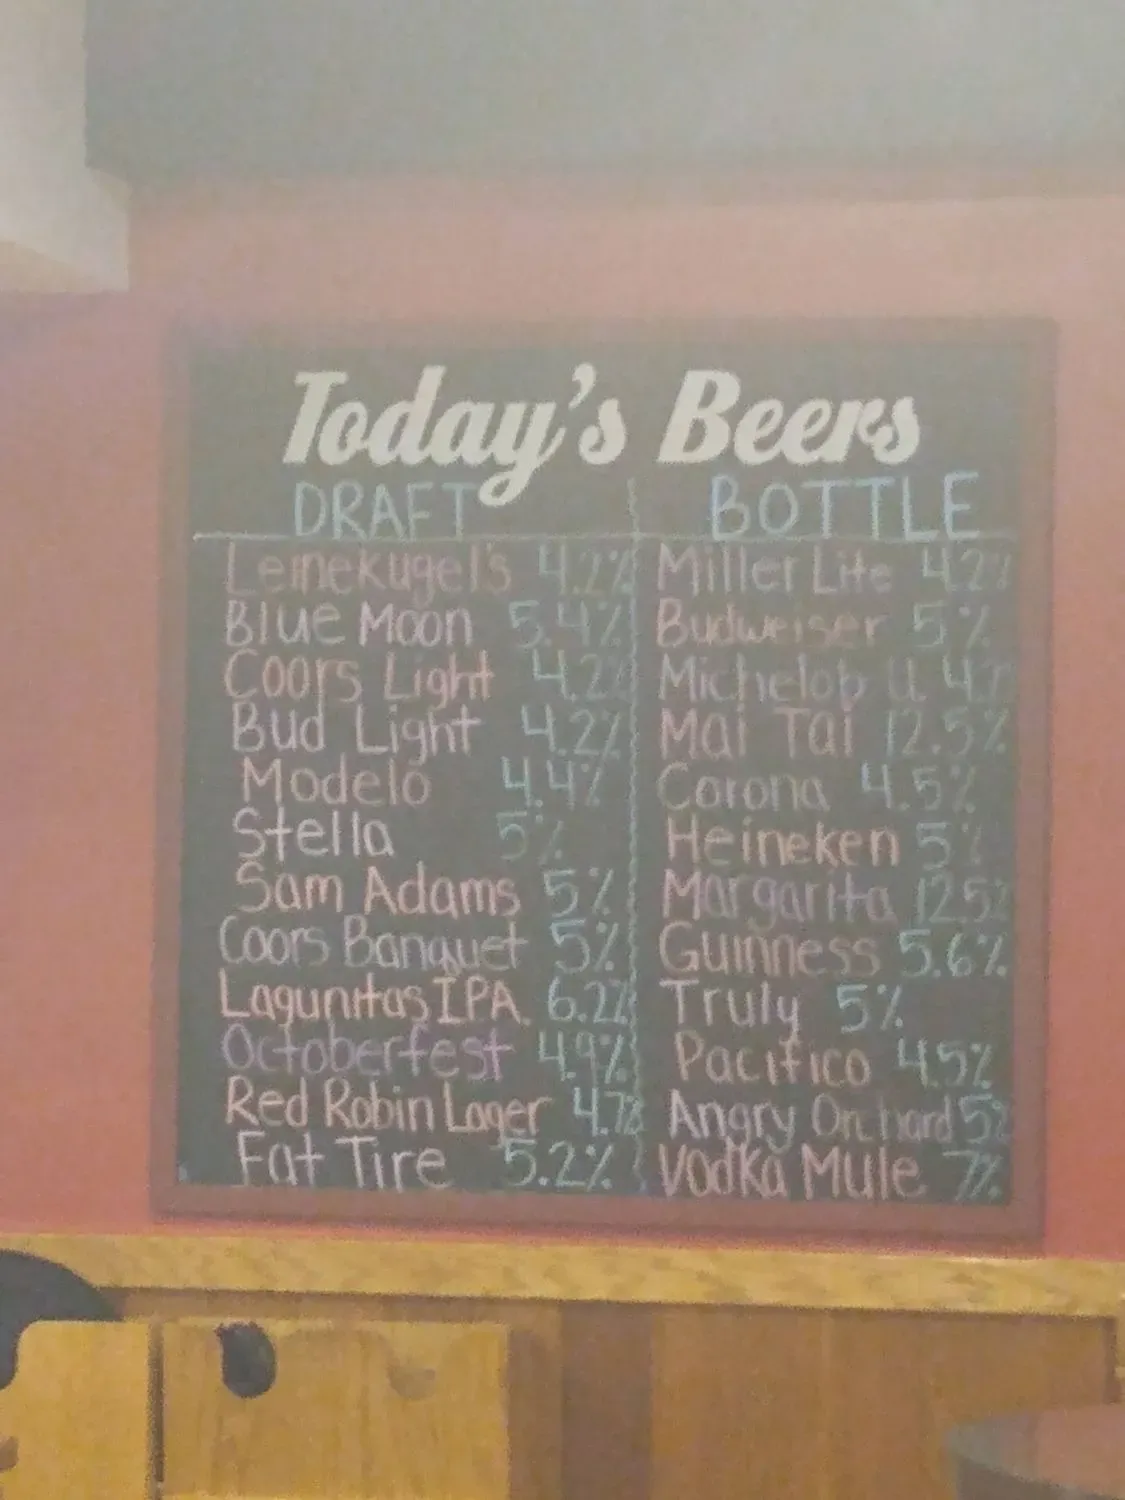 Today's Beers
DRAFT
Leinekugel's 4.2%
Blue Moon 5.4%
Coors Light 4.2%
Bud Light 4.2%
Modelo 4.4%
Stella 5%
Sam Adams 5%
Coors Banquet 5%
Lagunitas IPA 6.2%
Octoberfest 4.9%
Red Robin Lager 4.7%
Fat Tire 5.2%
BOTTLE
Miller Lite 4.2%
Budweiser 5%
Michelob U.
Mai Tai 12.5%
Corona 4.5%
Heineken 5%
Margarita 12.5%
Guinness 5.6%
Truly 5%
Pacifico 4.5%
Angry Orchard 5%
Vodka Mule 7%